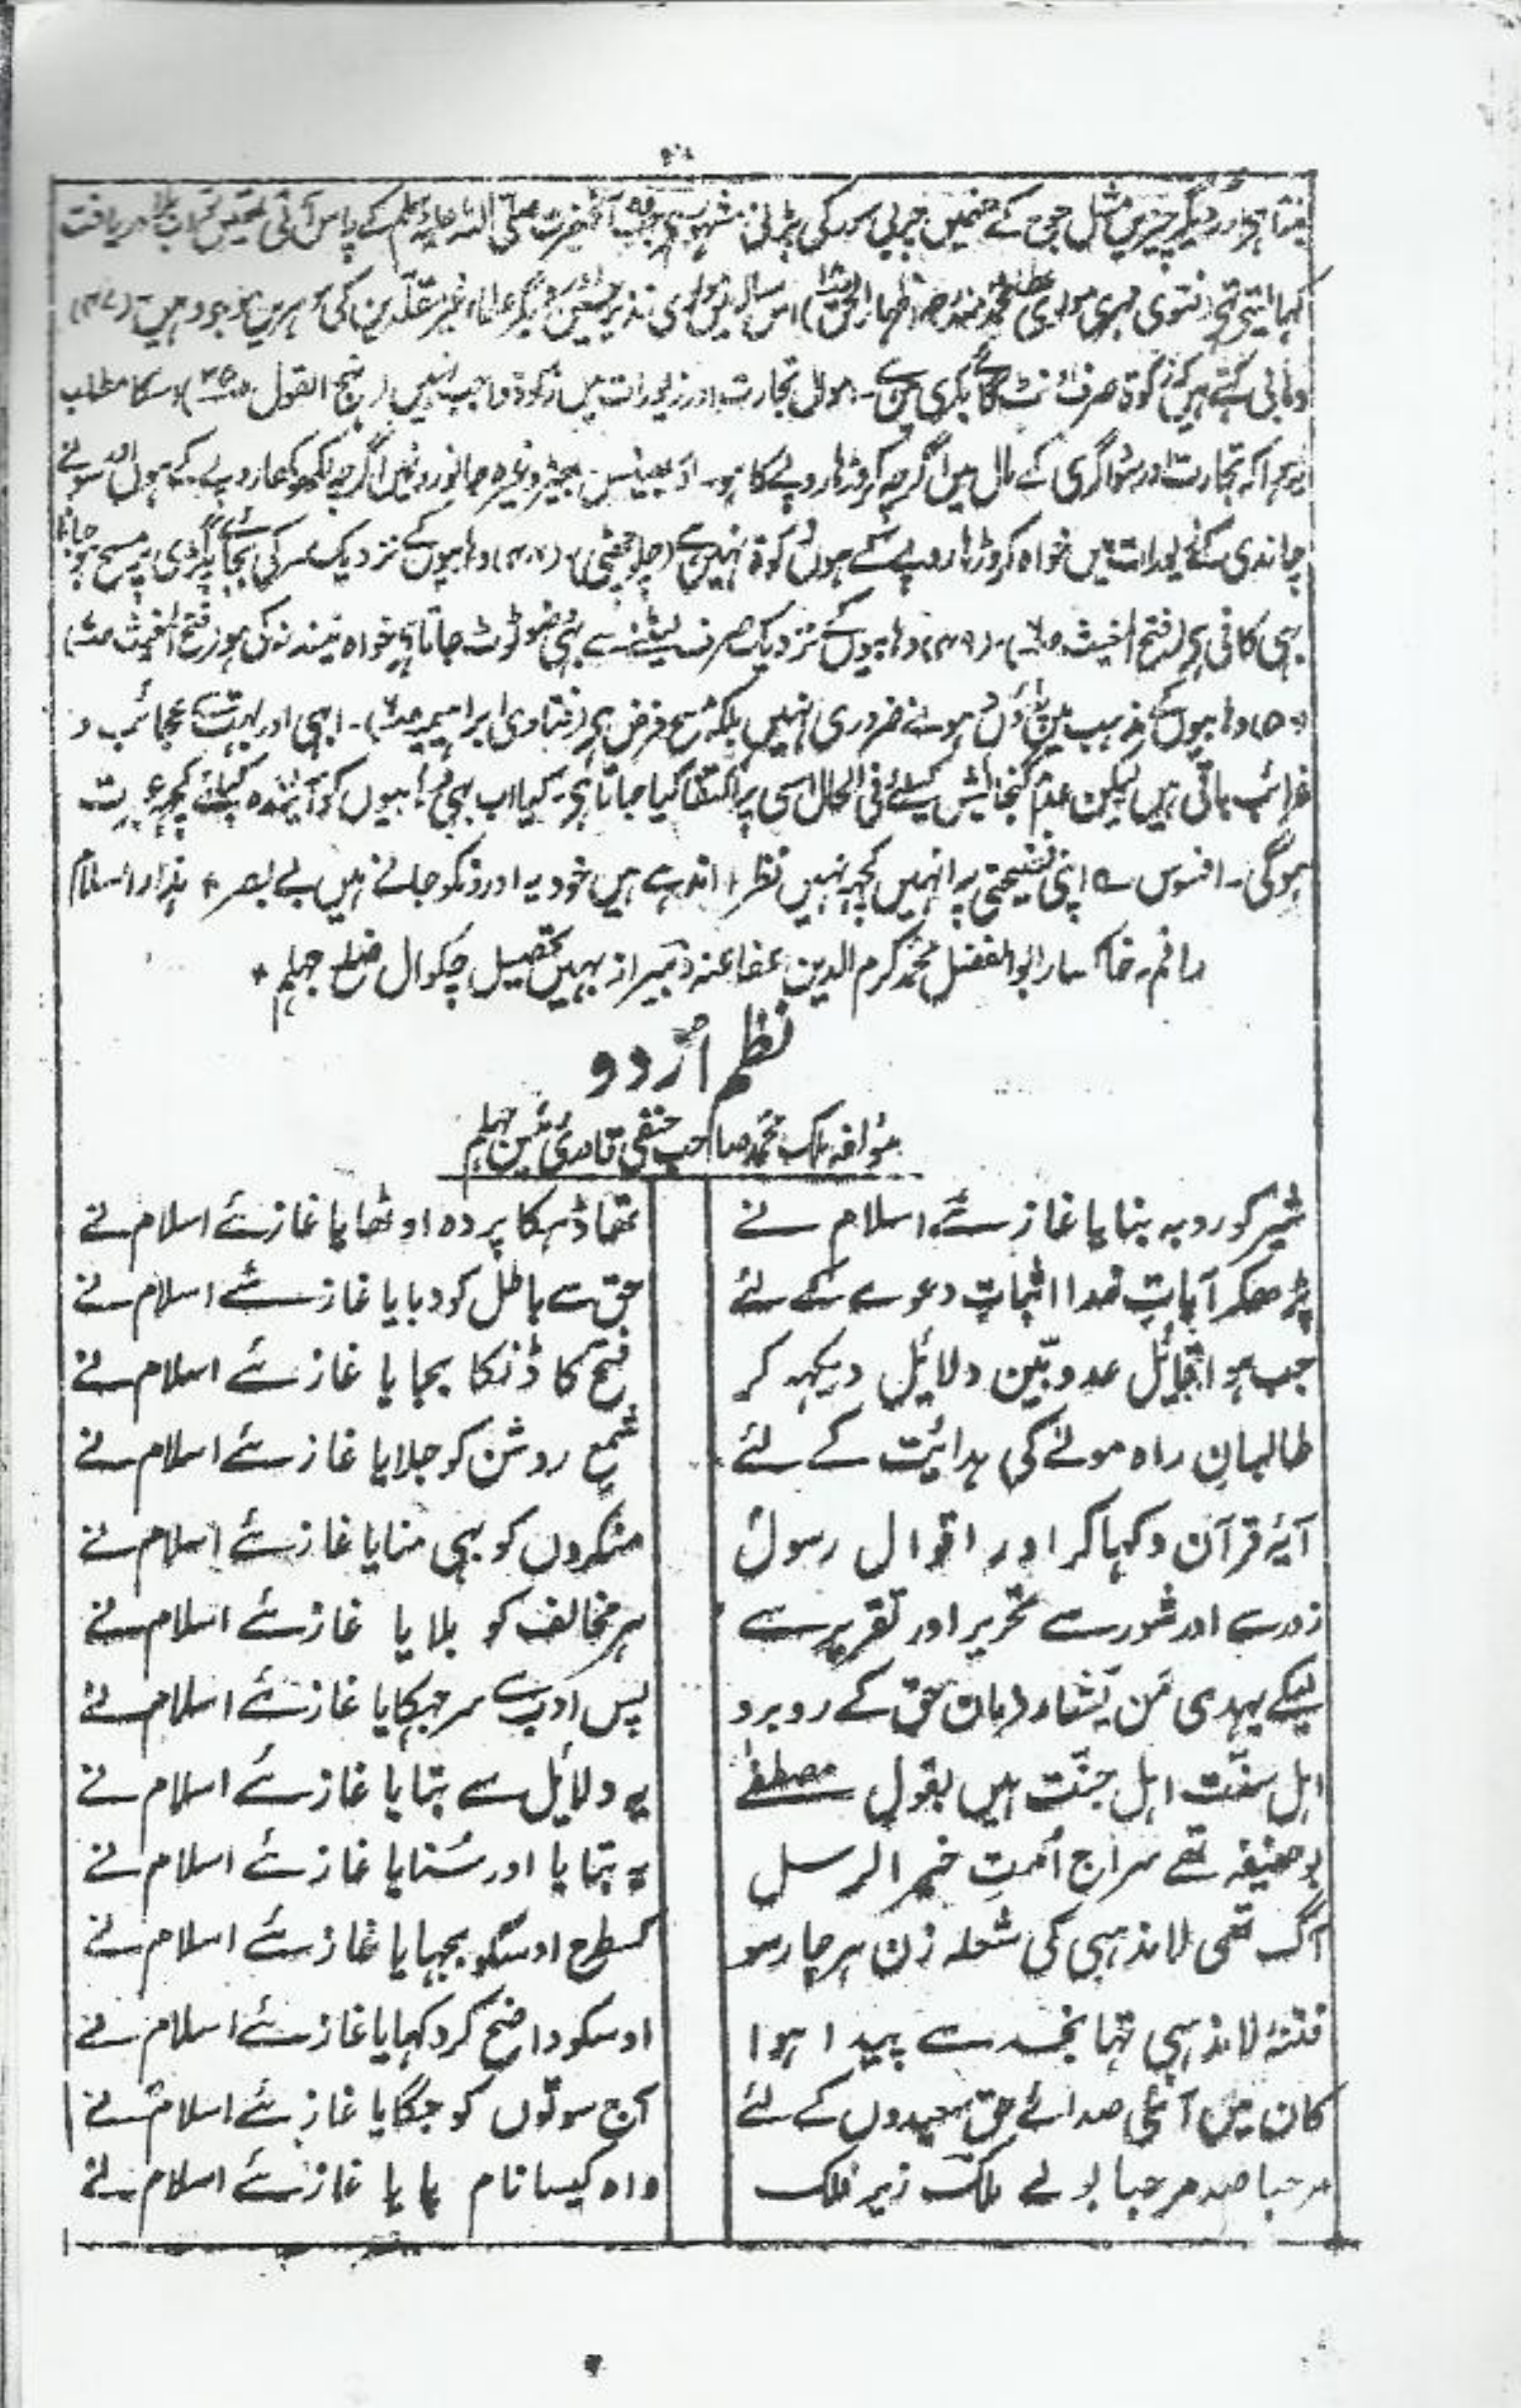 ہے اور دیگر چیزیں مثل جوخ کے جنمیں چربی سور کی پڑنی مشہور ہے جب آنحضرت صلی اللہ علیہ وسلم کے پاس آتی تھیں تو بلا دریافت
کہا لیتے تھے (فتوی مہری مولوی عطا محمد اظہار الحق) اس رسالہ میں مولوی نذیر حسین و دیگر علماء غیر مقلدین کی مہریں موجود ہیں (۴۷)
وہابی کہتے ہیں کہ زکوۃ صرف اونٹ گائے بکری میں ہے۔ اموال تجارت اور زیورات میں زکوۃ واجب نہیں (نہج القول) اسکا مطلب
یہ ہوا کہ تجارت اور سوداگری کے مال میں اگرچہ کروڑہا روپے کا ہو۔ اور بھینس۔ بھیڑ وغیرہ جانوروں میں اگرچہ لکھوکھا روپے کے ہوں اور سونے
چاندی کے زیورات میں خواہ کروڑہا روپے کے ہوں زکوۃ نہیں ہے (۴۸) وہابیوں کے نزدیک سر کی بجائے پگڑی پر مسح ہو جانا
بہی کافی ہے (فتح المغیث) (۴۹) وہابیوں کے نزدیک صرف لیٹنے سے بہی وضو ٹوٹ جاتا ہے خواہ نیند نہ کی ہو (فتح المغیث)
(۵۰) وہابیوں کے مذہب میں پاؤں دھونے ضروری نہیں بلکہ مسح فرض ہے (فتاوی ابراہیمیہ)۔ ابہی اور بہت سے عجائب و
غرائب باقی ہیں لیکن عدم گنجائش کیلئے فی الحال اسی پر اکتفا کیا جاتا ہے۔ کیا اب بہی وہابیوں کو آئیندہ کیلئے کچھ عبرت
ہوگی۔ افسوس ؎ اپنی فضیحتی پہ انہیں کچھ نہیں نظر ٭ اندہے ہیں خود یہ اورونکو جانے ہیں بے بصر ٭
راقم خاکسار ابوالفضل محمد کرم الدین عفا عنہ دبیر از بہیں تحصیل چکوال ضلع جہلم ٭
نظم اُردو
مؤلفہ ملک محمد صاحب حنفی قادری جہلم
شیر کو روبہ بنایا غازئے اسلام نے
تھا ڈہکا پردہ اوٹھایا غازئے اسلام نے
پڑھکر آیاتِ خدا اثباتِ دعوے کے لئے
حق سے باطل کو دبایا غازئے اسلام نے
جب ہوا قائل عدو بیّن دلائل دیکہہ کر
فتح کا ڈنکا بجایا غازئے اسلام نے
طالبانِ راہ مولےٰ کی ہدائیت کے لئے
شمع روشن کو جلایا غازئے اسلام نے
آیۂ قرآن دکہاکر اور اقوالِ رسولؐ
منکروں کو بہی منایا غازئے اسلام نے
زور سے اور شور سے تحریر اور تقریر سے
ہر مخالف کو بلایا غازئے اسلام نے
لیکے یہدی مَن یّشاء فرمان حق کے روبرو
پس ادب سے سر جہکایا غازئے اسلام نے
اہل سنّت اہل جنّت ہیں بقول مصطفےٰ
یہ دلائل سے بتایا غازئے اسلام نے
بو حنیفہ تھے سراجِ اُمّتِ خیر الرسل
یہ بتایا اور سُنایا غازئے اسلام نے
آگ تھی لا مذہبی کی شعلہ زن ہر چار سو
کسطرح اوسکو بجہایا غازئے اسلام نے
فتنۂ لا مذہبی تہا نجد سے پیدا ہوا
اوسکو واضح کر دکہایا غازئے اسلام نے
کان میں آئی صدائے حق سعیدوں کے لئے
آج سوتوں کو جگایا غازئے اسلام نے
مرحبا صد مرحبا بولے ملک زیر فلک
واہ کیسا نام پایا غازئے اسلام نے